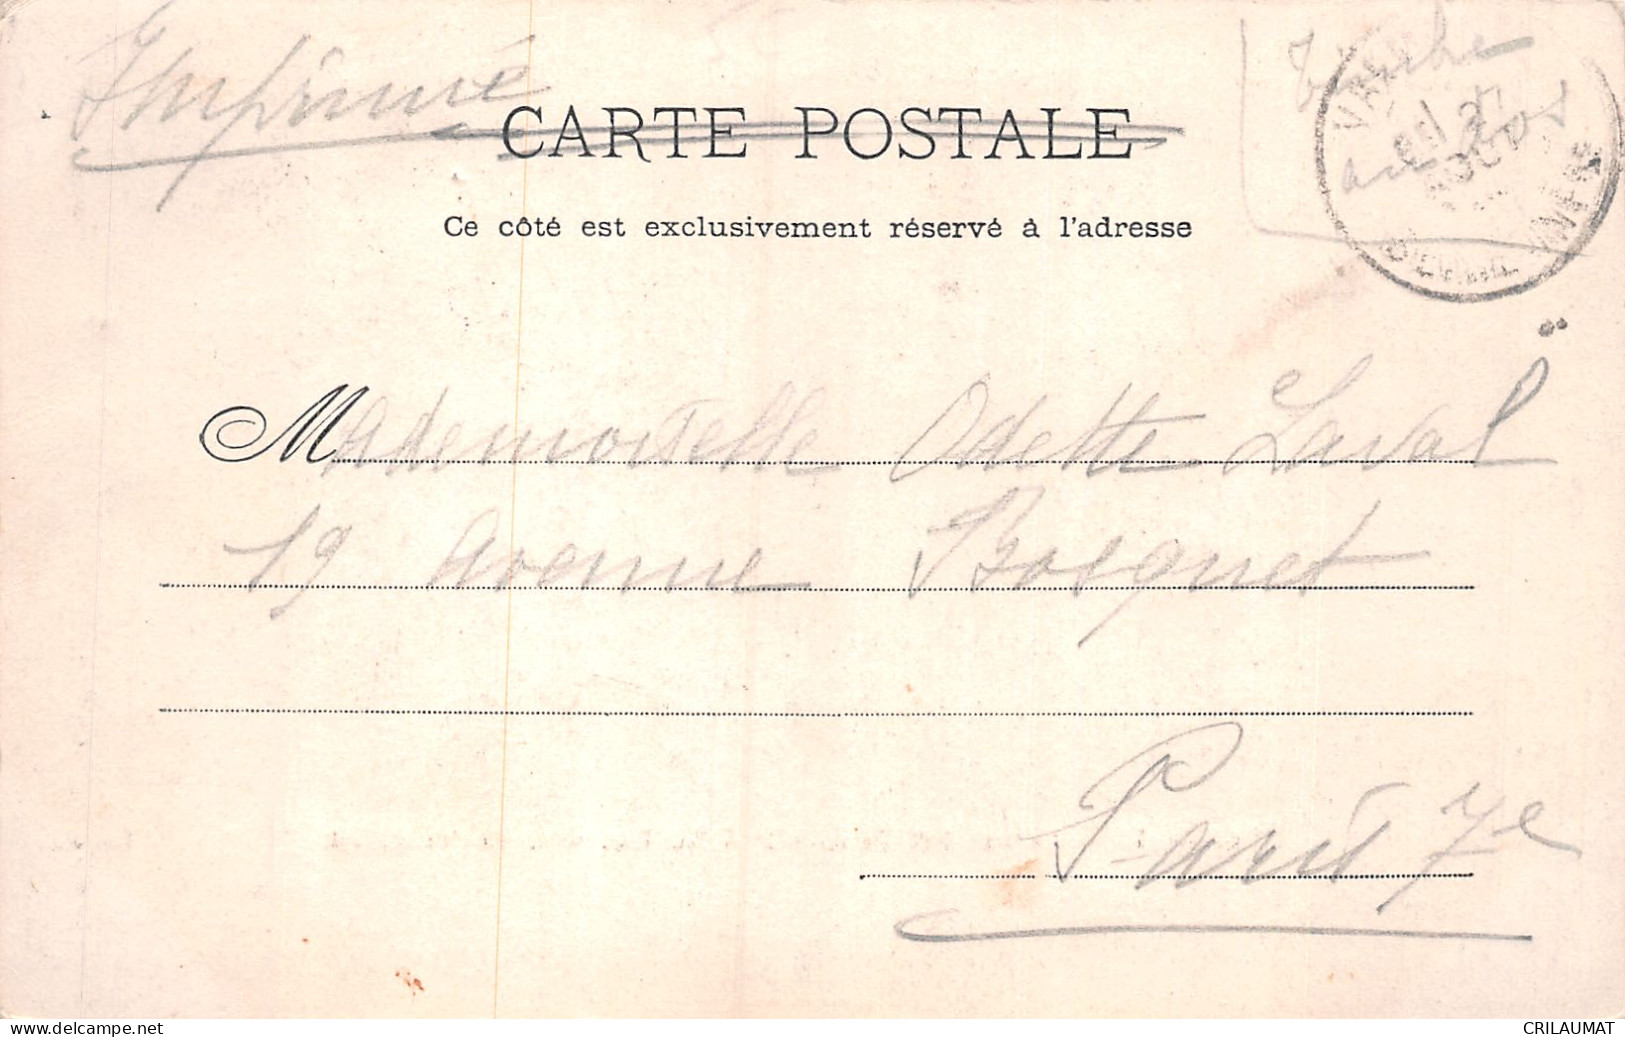 Imprimé
CARTE POSTALE
Ce côté est exclusivement réservé à l'adresse
Timbre
au dos
Mademoiselle Odette Laval
19 Avenue Bosquet
Paris 7e
www.delcampe.net
CRILAUMAT